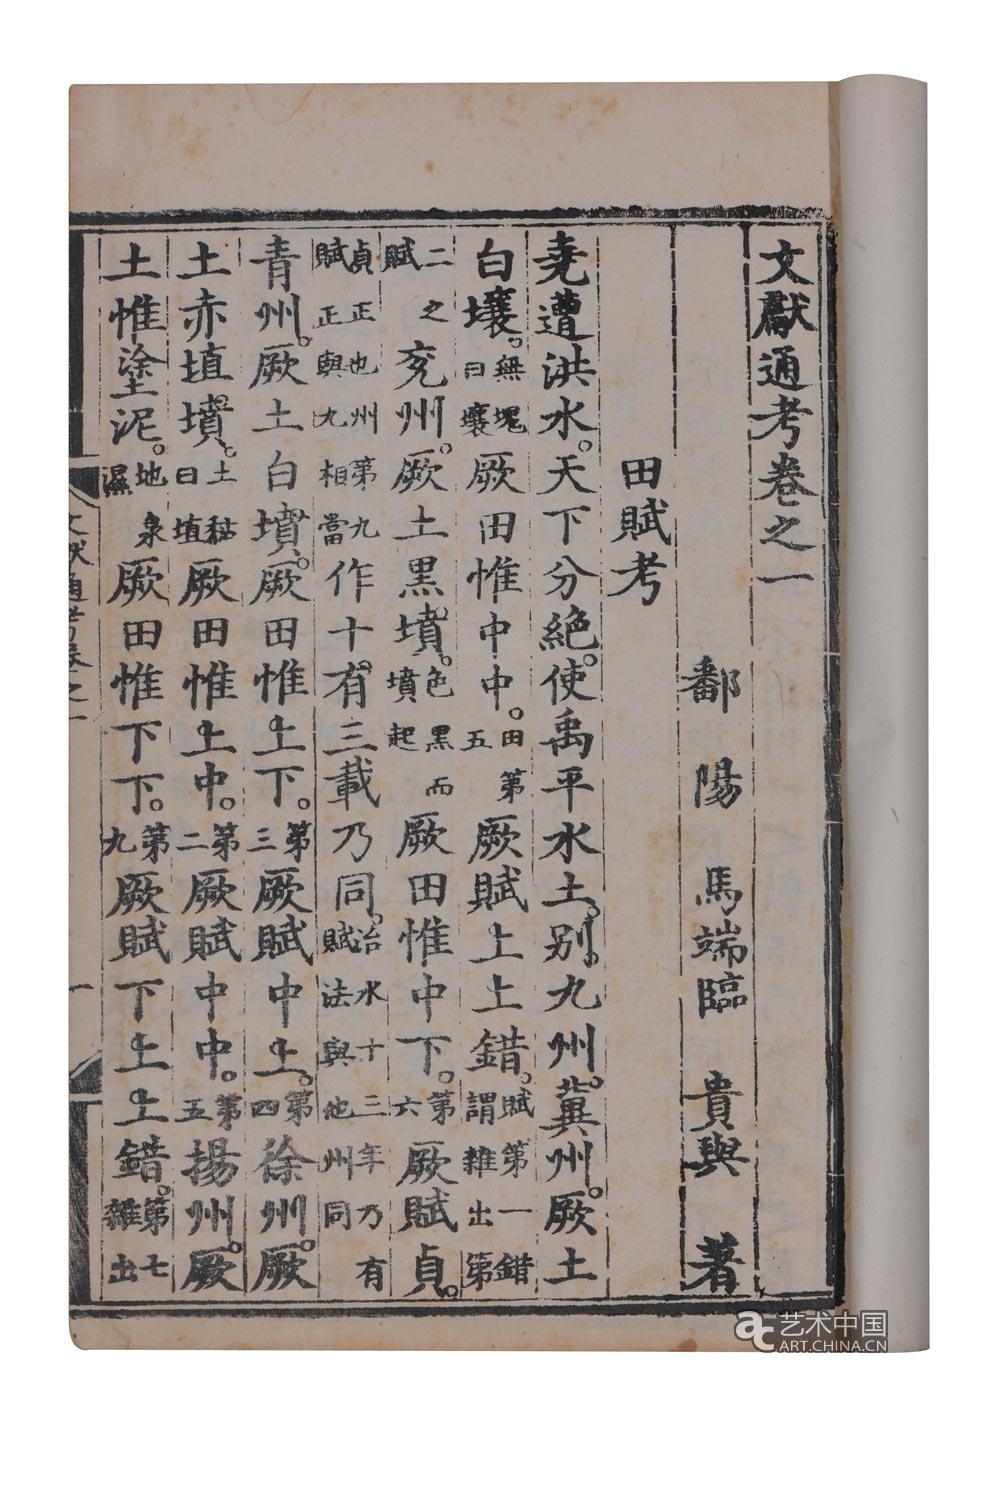 文獻通考卷之一
鄱陽馬端臨貴與著
田賦考
堯遭洪水。天下分絕。使禹平水土。別九州。冀州。厥土
白壤。無塊曰壤厥田惟中中。田第五厥賦上上錯。賦第一錯謂雜出第
二之賦兖州。厥土黑墳。色黑而墳起厥田惟中下。第六厥賦貞。
貞正也州第九賦正與九相當作十有三載乃同。治水十三年乃有賦法與他州同
青州。厥土白墳。厥田惟上下。第三厥賦中上。第四徐州。厥
土赤埴墳。土秥曰埴厥田惟上中。第二厥賦中中。第五揚州。厥
土惟塗泥。地泉濕厥田惟下下。第九厥賦下上上錯。第七雜出
艺术中国
ART.CHINA.CN